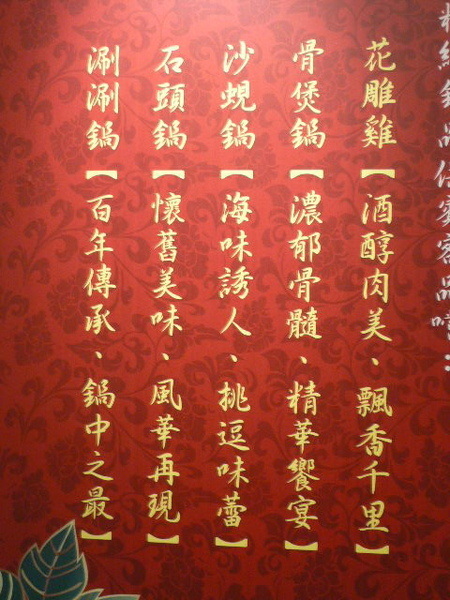 精緻鍋品任賓客品嚐：
花雕雞【酒醇肉美、飄香千里】
骨煲鍋【濃郁骨髓、精華饗宴】
沙蜆鍋【海味誘人、挑逗味蕾】
石頭鍋【懷舊美味、風華再現】
涮涮鍋【百年傳承、鍋中之最】